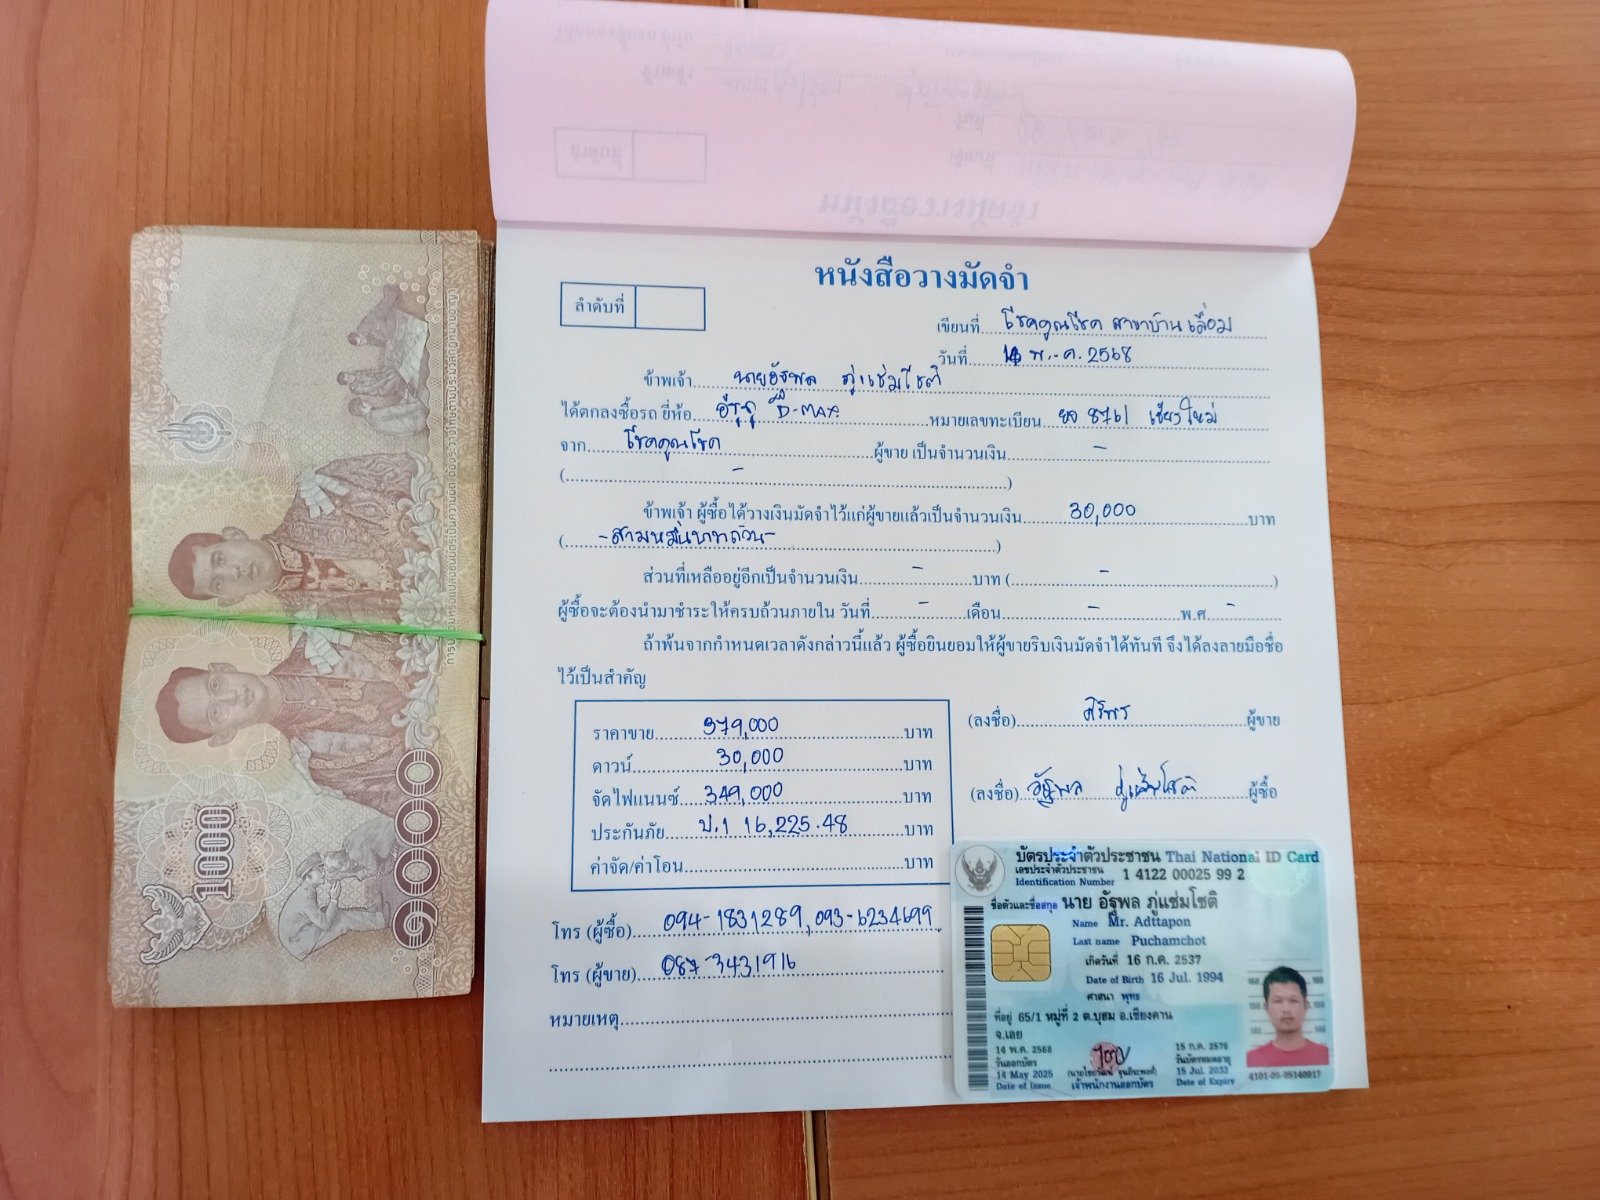 หนังสือวางมัดจำ
ลำดับที่
เขียนที่ โชคคูณโชค สาขาบ้านเลื่อม
วันที่ 14 พ.ค. 2568
ข้าพเจ้า นายอัฐพล ภู่แช่มโชติ
ได้ตกลงซื้อรถ ยี่ห้อ อีซูซุ D-MAX หมายเลขทะเบียน ยจ 8761 เชียงใหม่
จาก โชคคูณโชค ผู้ขาย เป็นจำนวนเงิน -
( - )
ข้าพเจ้า ผู้ซื้อได้วางเงินมัดจำไว้แก่ผู้ขายแล้วเป็นจำนวนเงิน 30,000 บาท
( -สามหมื่นบาทถ้วน- )
ส่วนที่เหลืออยู่อีกเป็นจำนวนเงิน - บาท ( - )
ผู้ซื้อจะต้องนำมาชำระให้ครบถ้วนภายใน วันที่ - เดือน - พ.ศ -
ถ้าพ้นจากกำหนดเวลาดังกล่าวนี้แล้ว ผู้ซื้อยินยอมให้ผู้ขายริบเงินมัดจำได้ทันที จึงได้ลงลายมือชื่อ
ไว้เป็นสำคัญ
ราคาขาย 379,000 บาท
ดาวน์ 30,000 บาท
จัดไฟแนนซ์ 349,000 บาท
ประกันภัย ป.1 16,225.48 บาท
ค่าจัด/ค่าโอน บาท
(ลงชื่อ) ศิริพร ผู้ขาย
(ลงชื่อ) อัฐพล ภู่แช่มโชติ ผู้ซื้อ
โทร (ผู้ซื้อ) 094-1831289, 093-6234699
โทร (ผู้ขาย) 087-3431916
หมายเหตุ
บัตรประจำตัวประชาชน Thai National ID Card
เลขประจำตัวประชาชน
Identification Number 1 4122 00025 99 2
ชื่อตัวและชื่อสกุล นาย อัฐพล ภู่แช่มโชติ
Name Mr. Adttapon
Last name Puchamchot
เกิดวันที่ 16 ก.ค. 2537
Date of Birth 16 Jul. 1994
ศาสนา พุทธ
ที่อยู่ 65/1 หมู่ที่ 2 ต.บุฮม อ.เชียงคาน
จ.เลย
14 พ.ค. 2568
วันออกบัตร
14 May 2025
Date of Issue
เจ้าพนักงานออกบัตร
15 ก.ค. 2576
วันบัตรหมดอายุ
15 Jul. 2033
Date of Expiry
4101-05-05140917
1000
๑๐๐๐